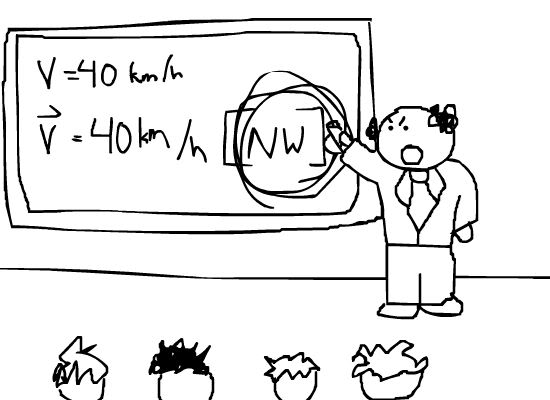 V = 40 km/h
V⃗ = 40 km/h [NW]